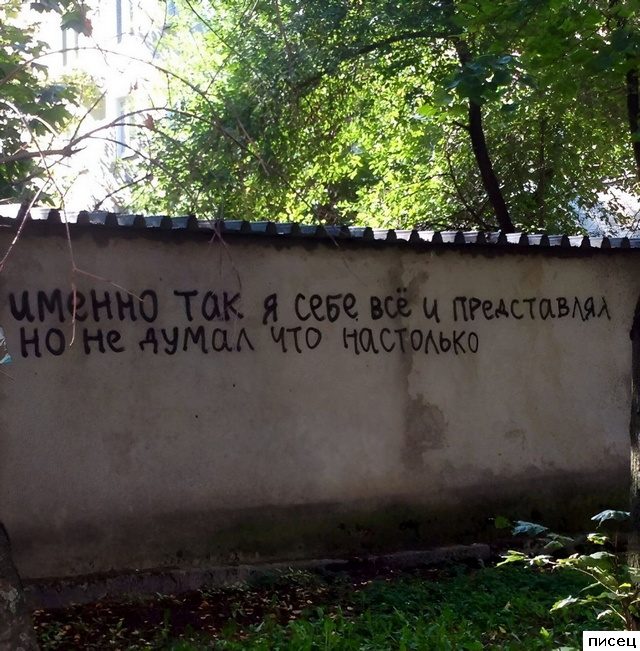 именно так я себе всё и представлял
но не думал что настолько
писец